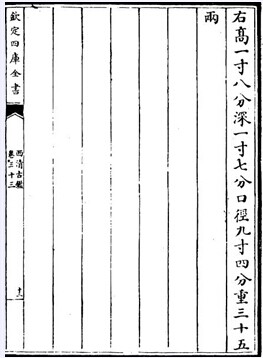 右髙一寸八分深一寸七分口徑九寸四分重三十五
兩
欽定四庫全書
西清古鑑
卷三十三